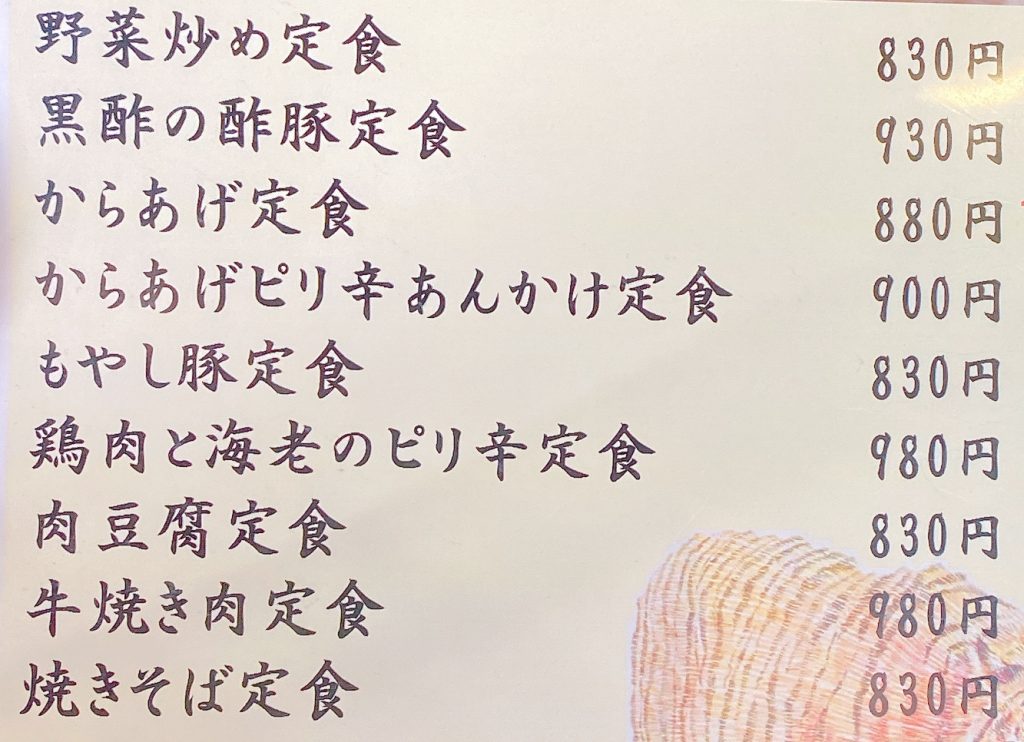 野菜炒め定食 830円
黒酢の酢豚定食 930円
からあげ定食 880円
からあげピリ辛あんかけ定食 900円
もやし豚定食 830円
鶏肉と海老のピリ辛定食 980円
肉豆腐定食 830円
牛焼き肉定食 980円
焼きそば定食 830円